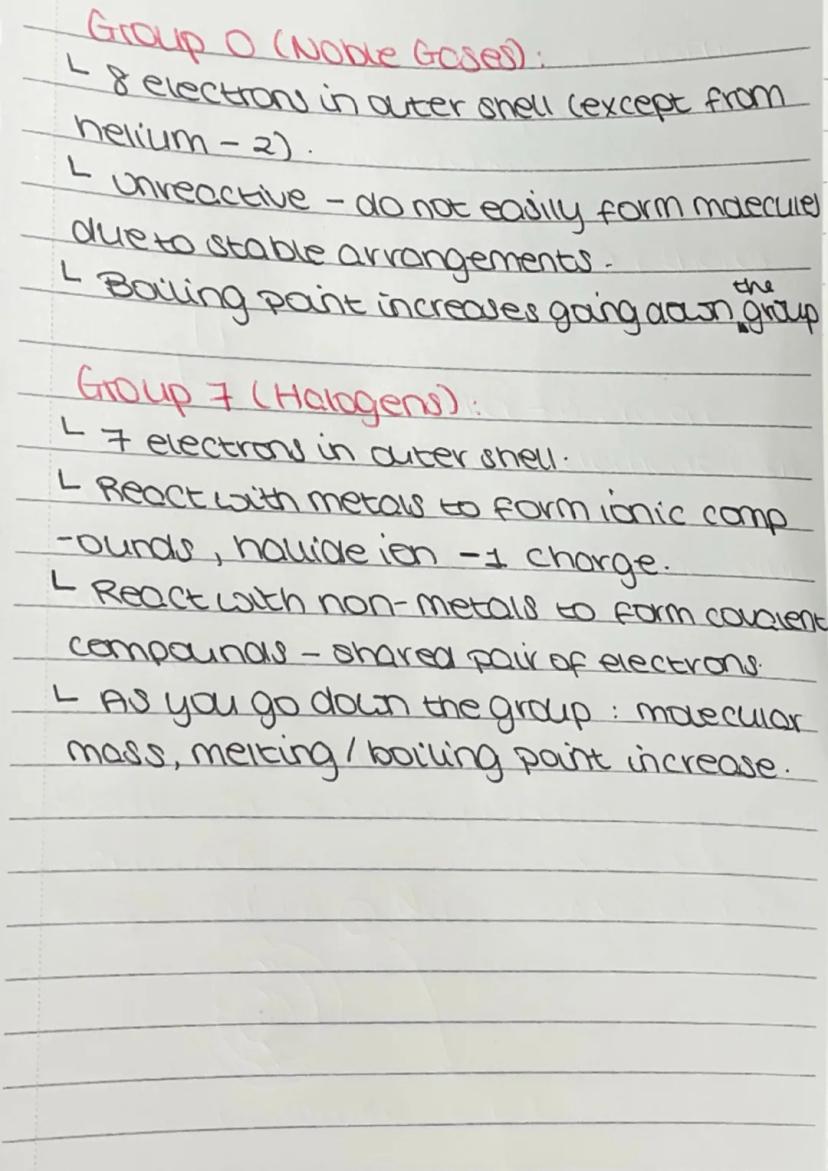 Group 0 (Noble Gases):
└ 8 electrons in outer shell (except from
helium - 2).
└ Unreactive - do not easily form molecules
due to stable arrangements.
└ Boiling point increases going down the group
Group 7 (Halogens):
└ 7 electrons in outer shell.
└ React with metals to form ionic comp
-ounds, halide ion -1 charge.
└ React with non-metals to form covalent
compounds - shared pair of electrons.
└ As you go down the group : molecular
mass, melting / boiling point increase.